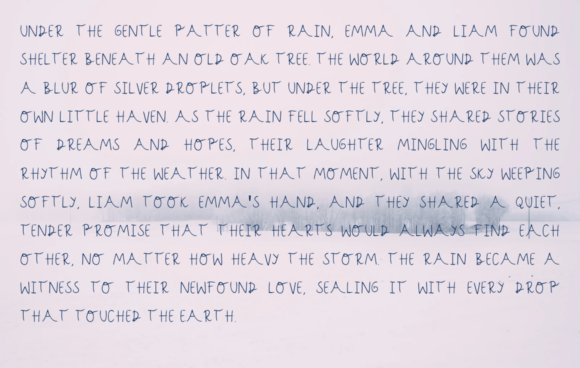 UNDER THE GENTLE PATTER OF RAIN, EMMA AND LIAM FOUND
SHELTER BENEATH AN OLD OAK TREE. THE WORLD AROUND THEM WAS
A BLUR OF SILVER DROPLETS, BUT UNDER THE TREE, THEY WERE IN THEIR
OWN LITTLE HAVEN. AS THE RAIN FELL SOFTLY, THEY SHARED STORIES
OF DREAMS AND HOPES, THEIR LAUGHTER MINGLING WITH THE
RHYTHM OF THE WEATHER. IN THAT MOMENT, WITH THE SKY WEEPING
SOFTLY, LIAM TOOK EMMA'S HAND, AND THEY SHARED A QUIET,
TENDER PROMISE THAT THEIR HEARTS WOULD ALWAYS FIND EACH
OTHER, NO MATTER HOW HEAVY THE STORM. THE RAIN BECAME A
WITNESS TO THEIR NEWFOUND LOVE, SEALING IT WITH EVERY DROP
THAT TOUCHED THE EARTH.